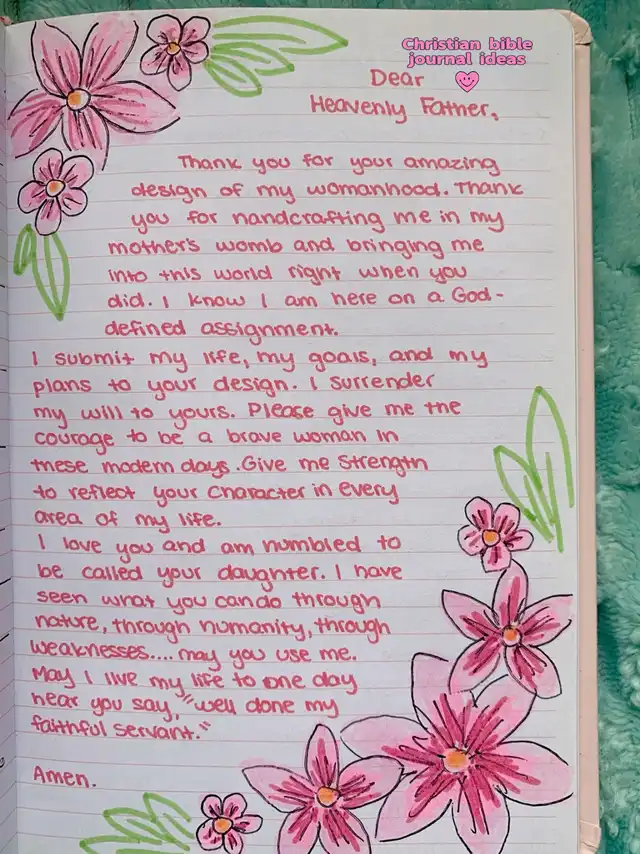 Christian bible
journal ideas
Dear
Heavenly Father,
Thank you for your amazing
design of my womanhood. Thank
you for handcrafting me in my
mother's womb and bringing me
into this world right when you
did. I know I am here on a God-
defined assignment.
I submit my life, my goals, and my
plans to your design. I surrender
my will to yours. Please give me the
courage to be a brave woman in
these modern days. Give me strength
to reflect your character in every
area of my life.
I love you and am humbled to
be called your daughter. I have
seen what you can do through
nature, through humanity, through
weaknesses.... may you use me.
May I live my life to one day
hear you say, "well done my
faithful servant."
Amen.